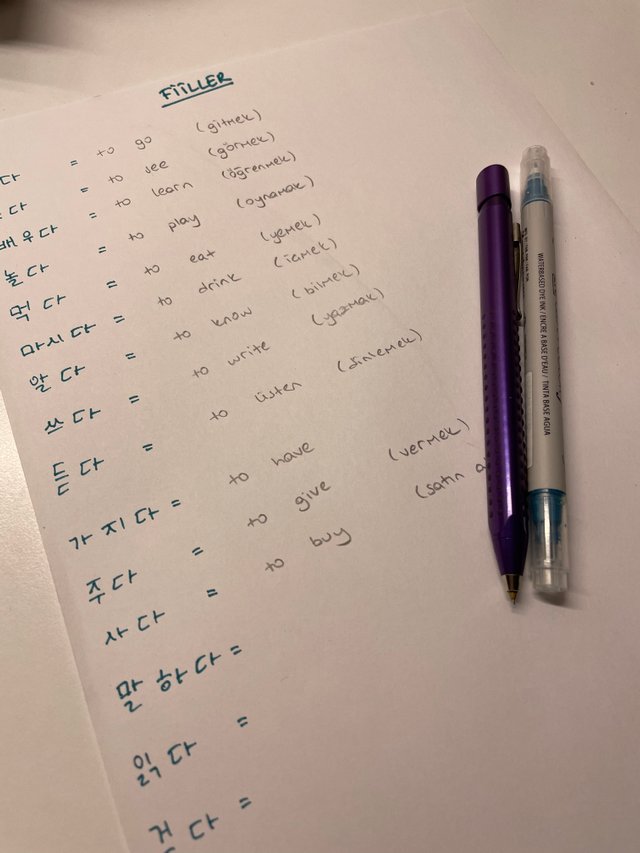 FİİLLER
다 = to go (gitmek)
다 = to see (görmek)
배우다 = to learn (öğrenmek)
놀다 = to play (oynamak)
먹다 = to eat (yemek)
마시다 = to drink (içmek)
알다 = to know (bilmek)
쓰다 = to write (yazmak)
듣다 = to listen (dinlemek)
가지다 = to have
주다 = to give (vermek)
사다 = to buy (satın a
말하다 =
읽다 =
다 =
WATERBASED DYE INK / ENCRE A BASE D'EAU / TINTA BASE AGUA